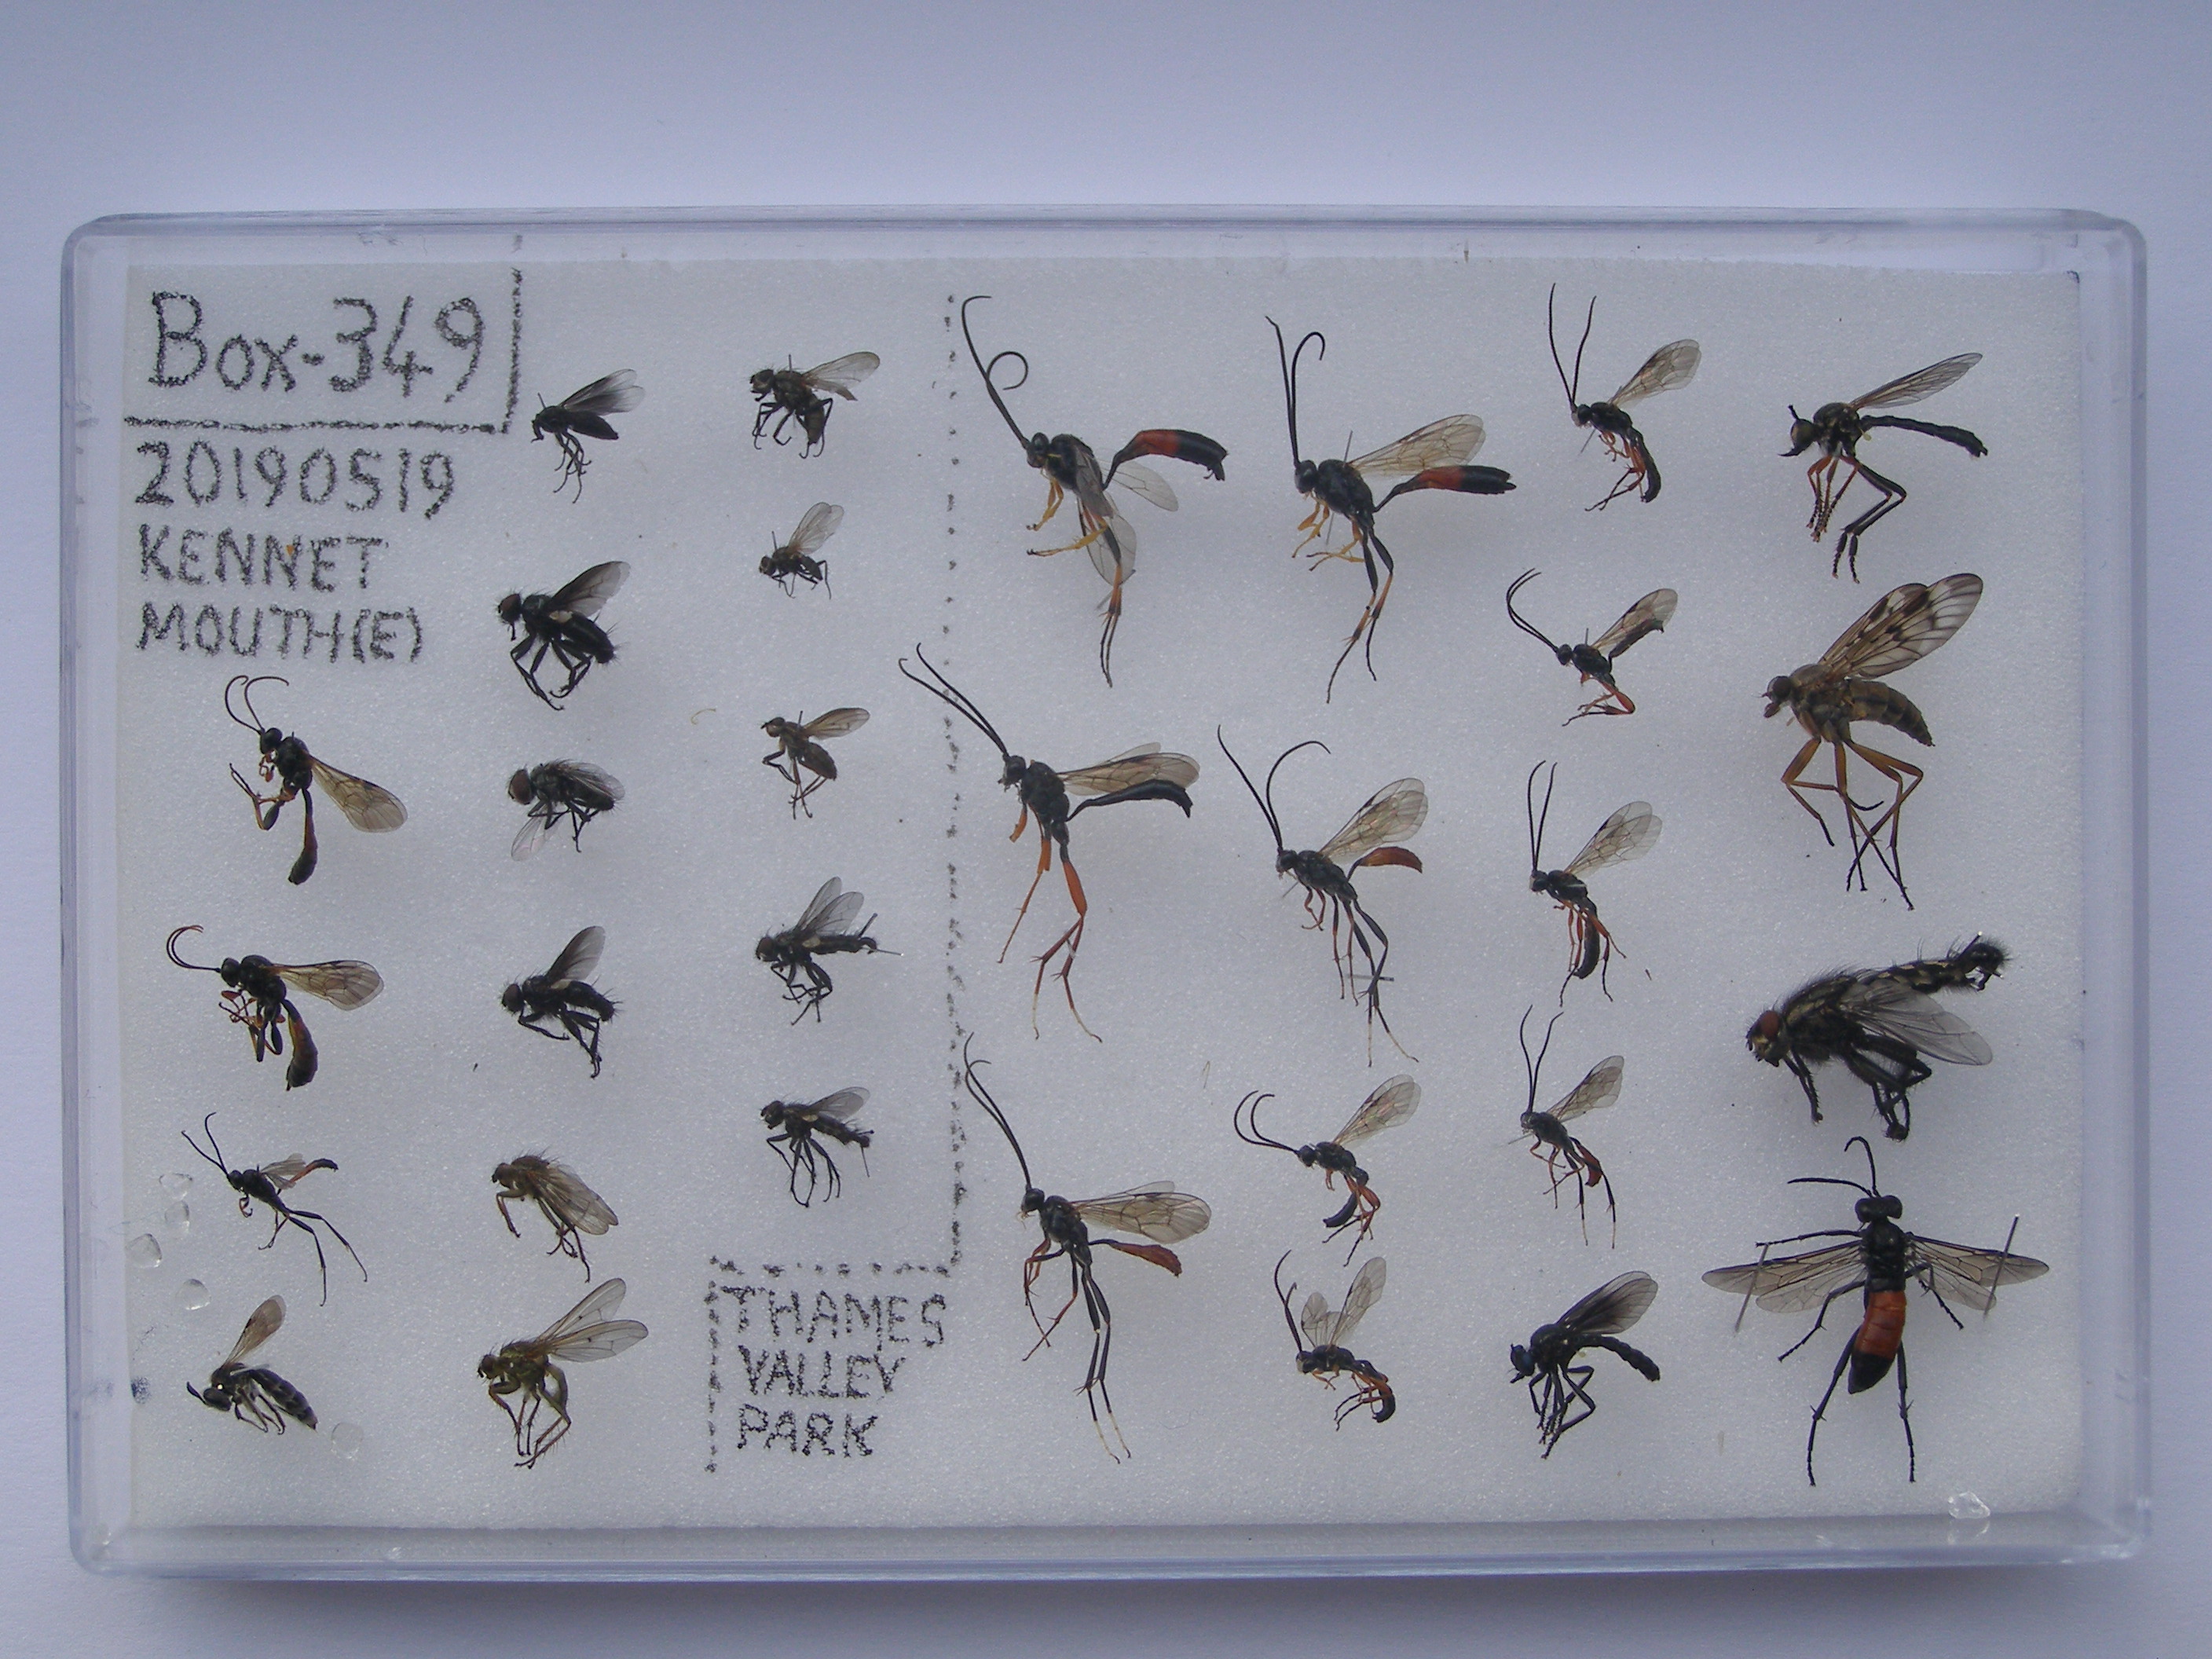 Box-349
20190519
KENNET
MOUTH(E)
THAMES
VALLEY
PARK